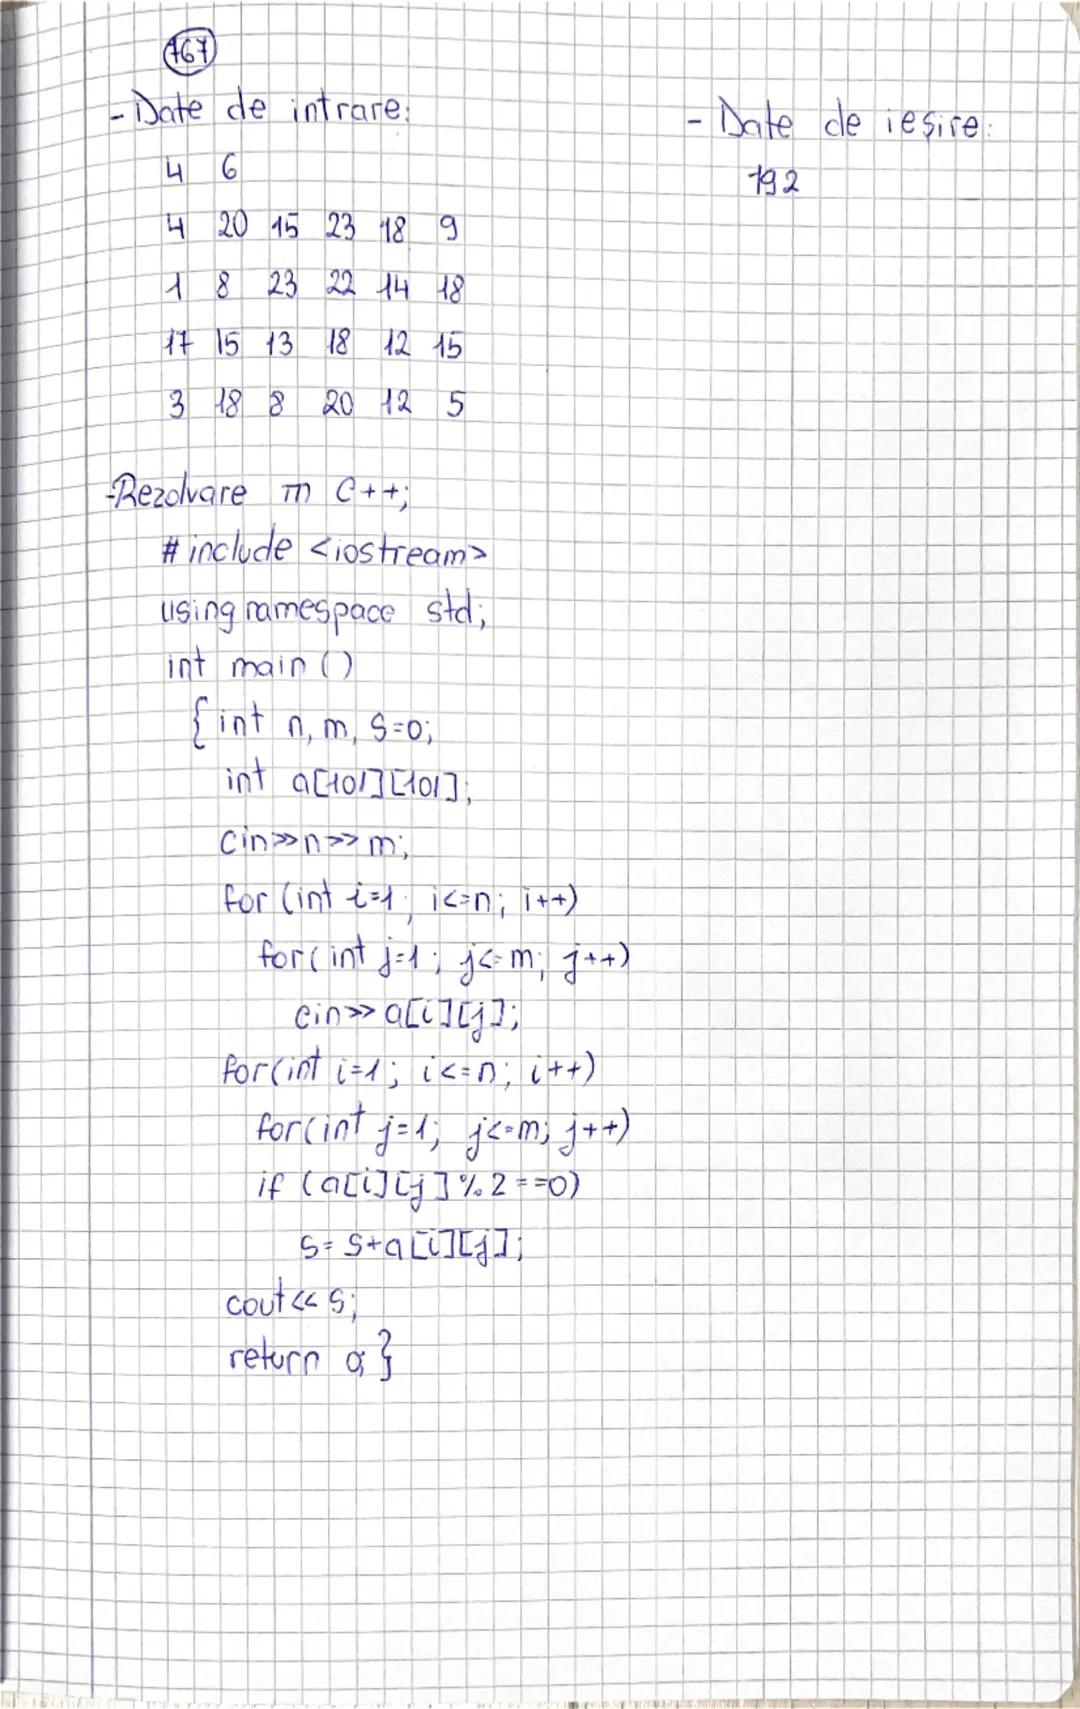 767
- Date de intrare:
4 6
4 20 15 23 18 9
1 8 23 22 14 18
17 15 13 18 12 15
3 18 8 20 12 5
- Date de ieșire:
192
-Rezolvare în C++;
#include <iostream>
using namespace std;
int main ()
{ int n, m, S=0;
int a[101][101];
cin>>n>>m;
for (int i=1; i<=n; i++)
for(int j=1; j<=m; j++)
cin>>a[i][j];
for(int i=1; i<=n; i++)
for(int j=1; j<=m; j++)
if (a[i][j]%2==0)
S=S+a[i][j];
cout<<S;
return 0; }